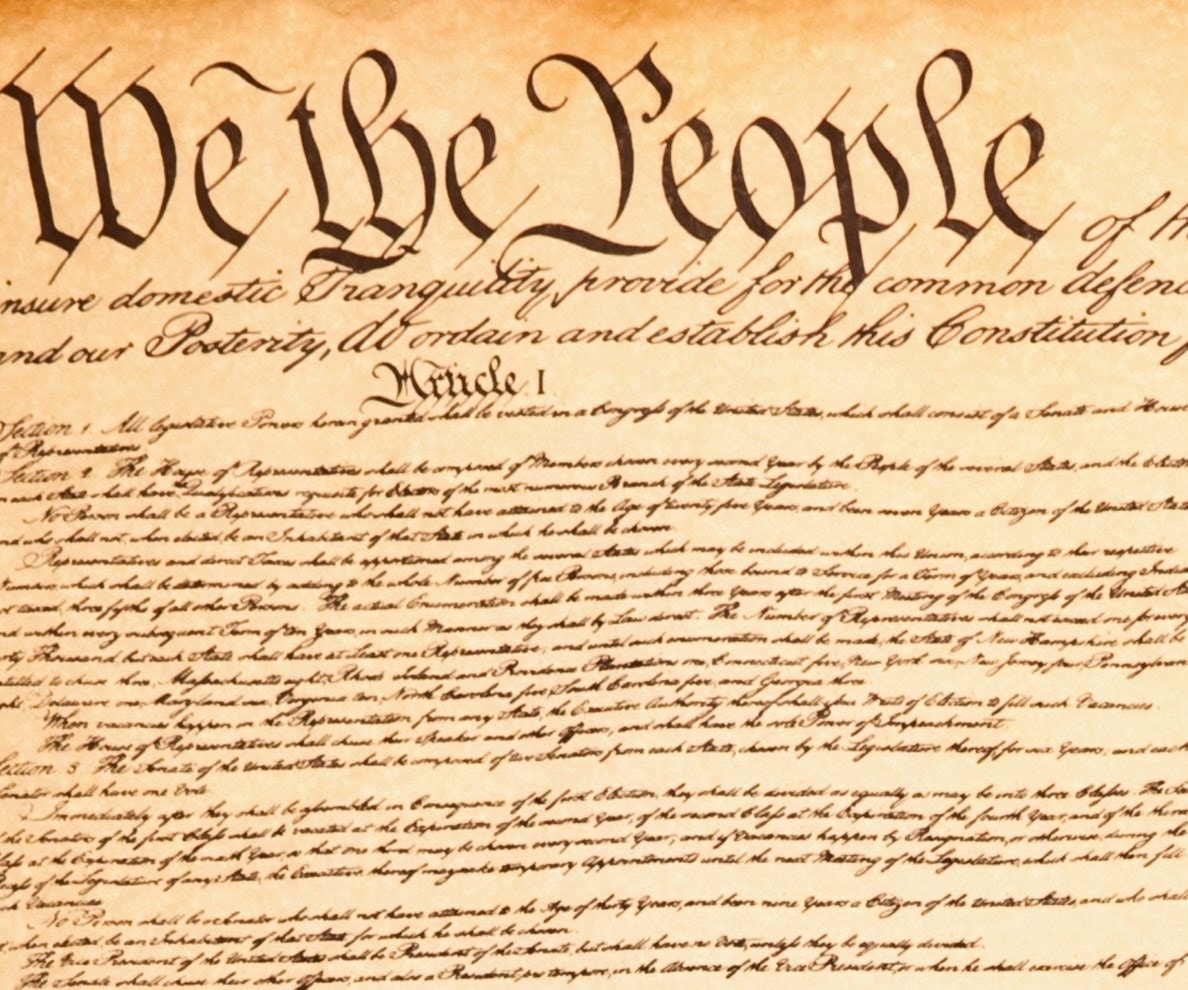 We the People of th
insure domestic Tranquility, provide for the common defenc
and our Posterity, do ordain and establish this Constitution f
Article I
Section 1. All legislative Powers herein granted shall be vested in a Congress of the United States, which shall consist of a Senate and House
of Representatives.
Section 2. The House of Representatives shall be composed of Members chosen every second Year by the People of the several States, and the Elect
in each State shall have the Qualifications requisite for Electors of the most numerous Branch of the State Legislature.
No Person shall be a Representative who shall not have attained to the Age of twenty five Years, and been seven Years a Citizen of the United State
and who shall not, when elected, be an Inhabitant of that State in which he shall be chosen.
Representatives and direct Taxes shall be apportioned among the several States which may be included within this Union, according to their respective
Numbers, which shall be determined by adding to the whole Number of free Persons, including those bound to Service for a Term of Years, and excluding India
not taxed, three fifths of all other Persons. The actual Enumeration shall be made within three Years after the first Meeting of the Congress of the United Sta
and within every subsequent Term of ten Years, in such Manner as they shall by Law direct. The Number of Representatives shall not exceed one for every
irty Thousand, but each State shall have at Least one Representative; and until such enumeration shall be made, the State of New Hampshire shall be
ntitled to chuse three, Massachusetts eight, Rhode Island and Providence Plantations one, Connecticut five, New York six, New Jersey four, Pennsylvan
ght, Delaware one, Maryland six, Virginia ten, North Carolina five, South Carolina five, and Georgia three.
When vacancies happen in the Representation from any State, the Executive Authority thereof shall issue Writs of Election to fill such Vacancies.
The House of Representatives shall chuse their Speaker and other Officers; and shall have the sole Power of Impeachment.
Section 3. The Senate of the United States shall be composed of two Senators from each State, chosen by the Legislature thereof, for six Years; and each
Senator shall have one Vote.
Immediately after they shall be assembled in Consequence of the first Election, they shall be divided as equally as may be into three Classes. The Sea
of the Senators of the first Class shall be vacated at the Expiration of the second Year, of the second Class at the Expiration of the fourth Year, and of the third
Class at the Expiration of the sixth Year, so that one third may be chosen every second Year; and if Vacancies happen by Resignation, or otherwise, during the
Recess of the Legislature of any State, the Executive thereof may make temporary Appointments until the next Meeting of the Legislature, which shall then fill
such Vacancies.
No Person shall be a Senator who shall not have attained to the Age of thirty Years, and been nine Years a Citizen of the United States, and who shall
not, when elected, be an Inhabitant of that State for which he shall be chosen.
The Vice President of the United States shall be President of the Senate, but shall have no Vote, unless they be equally divided.
The Senate shall chuse their other Officers, and also a President pro tempore, in the Absence of the Vice President, or when he shall exercise the Office of